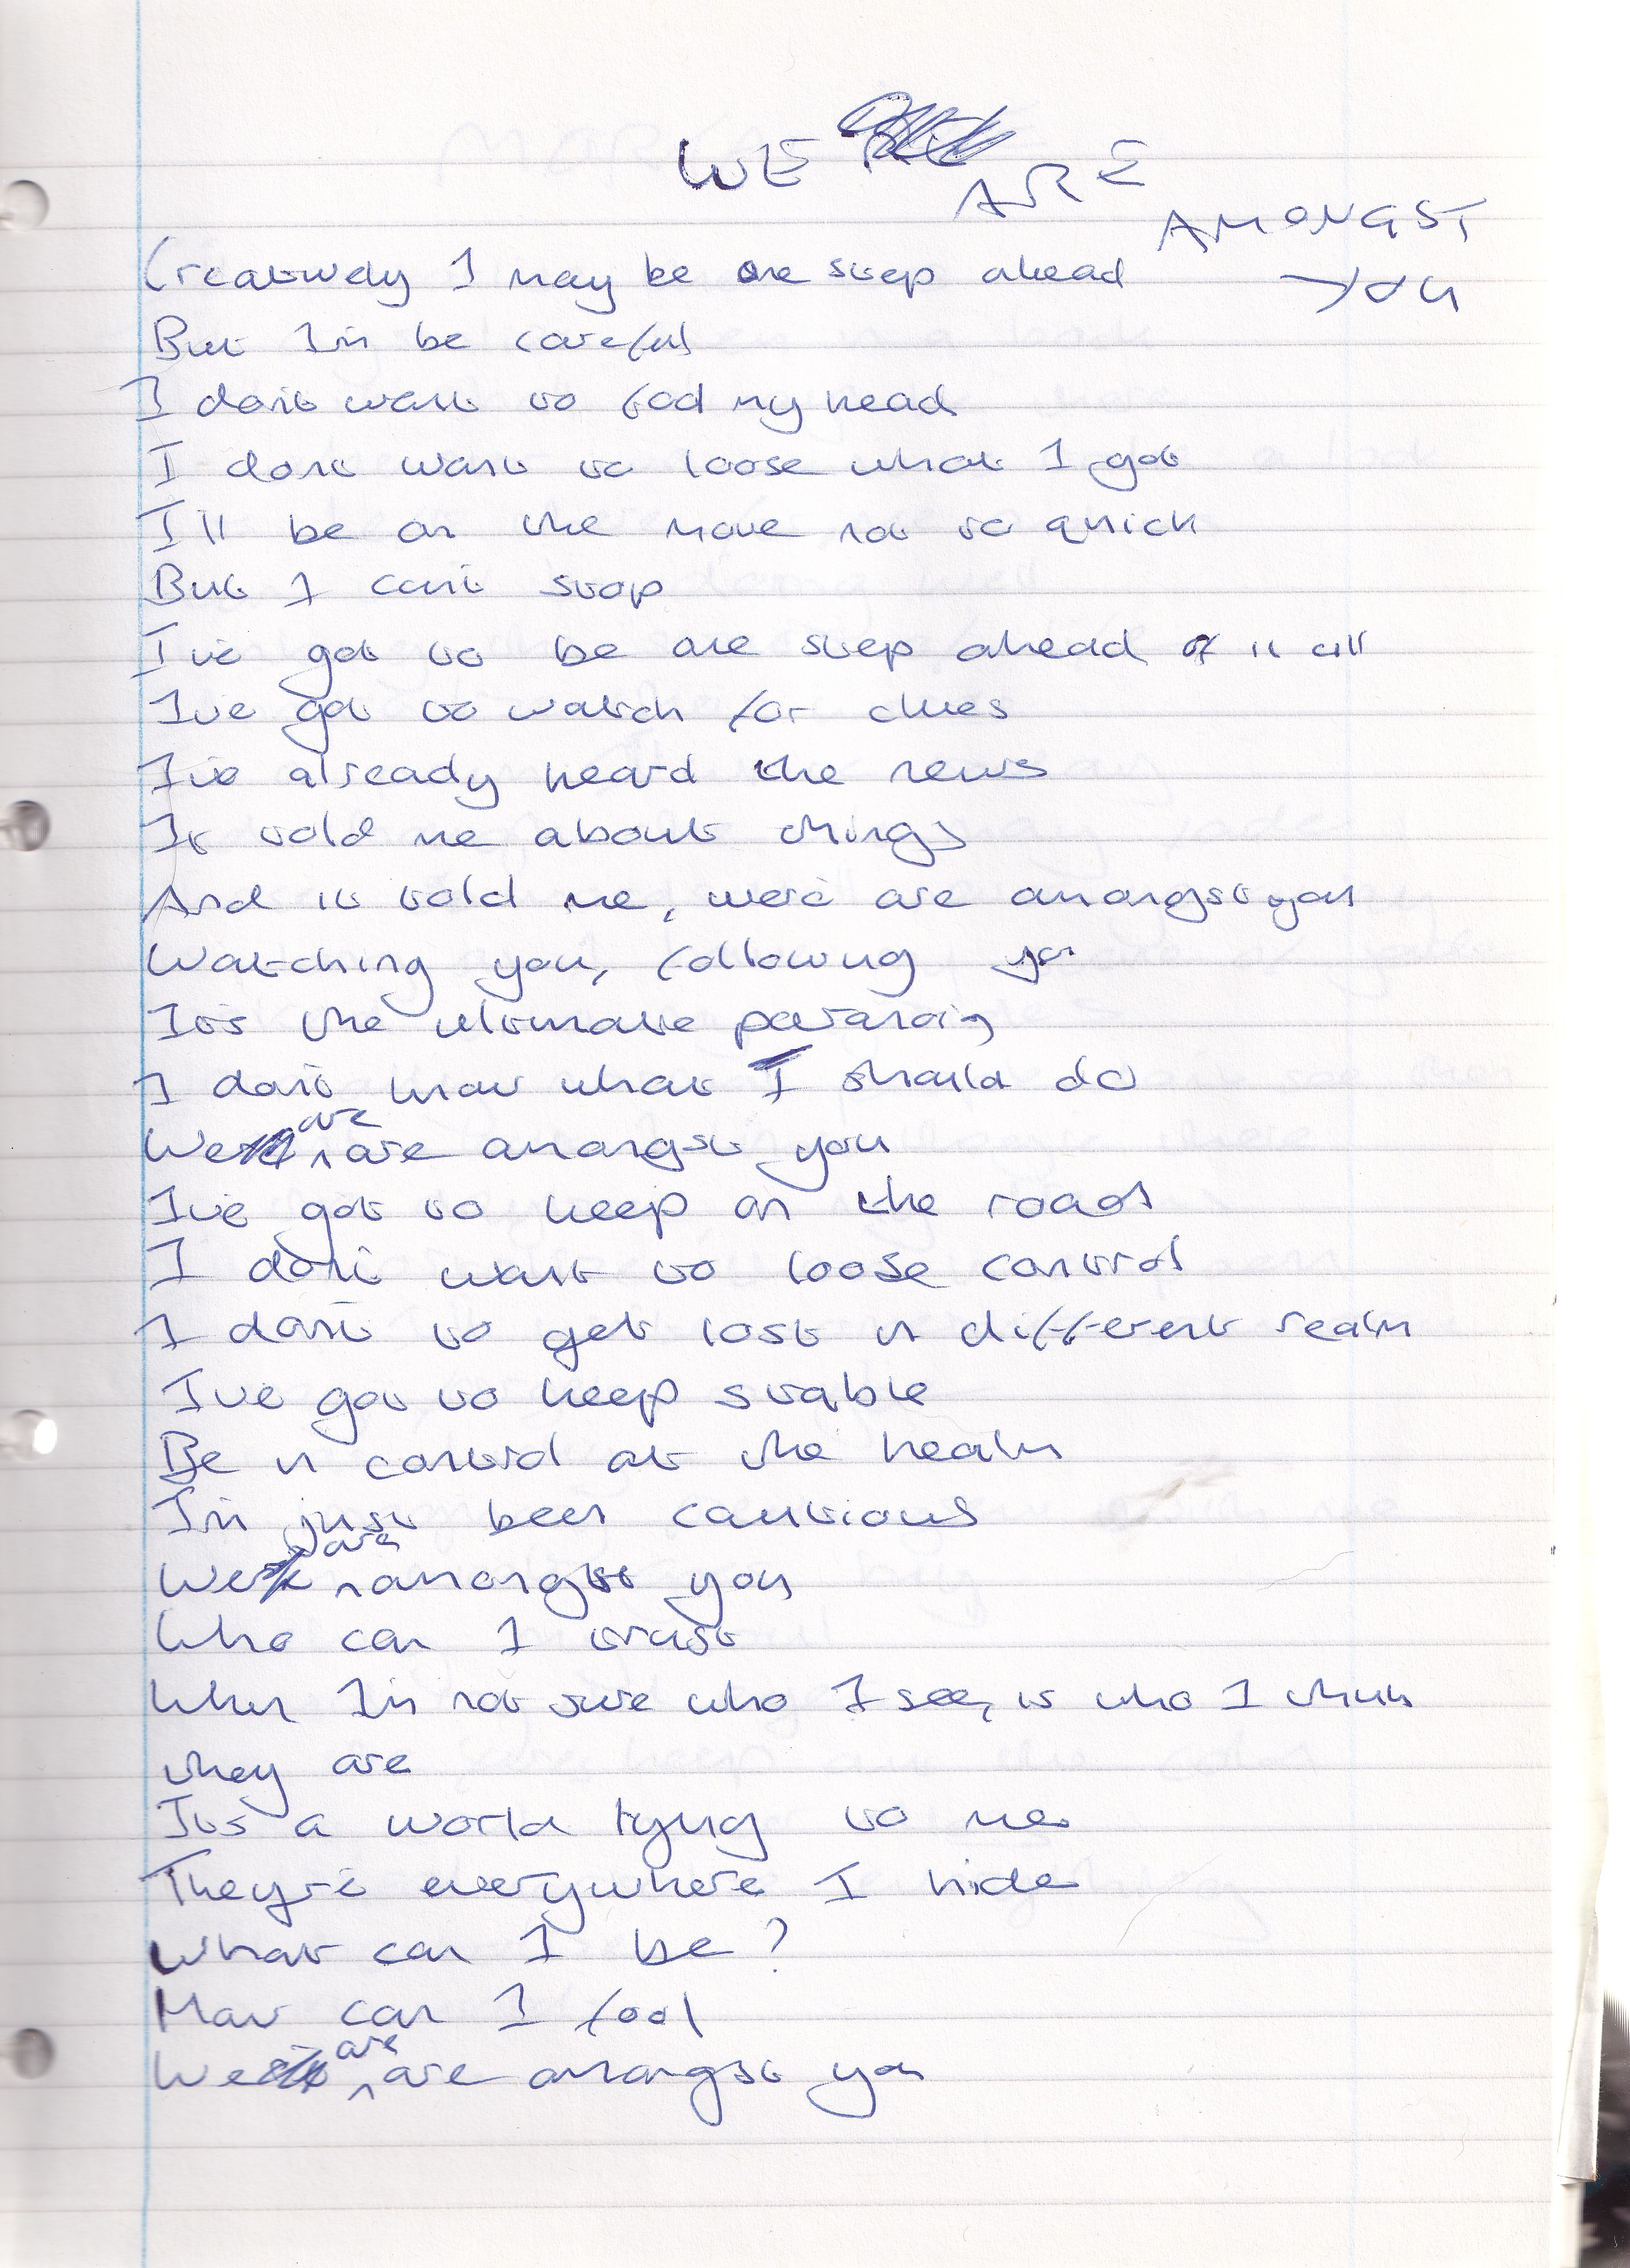 WE ARE
AMONGST
YOU
Creatively I may be one step ahead
But I'm be careful
I don't want to fod my head
I dont want to loose what I got
I'll be on the move not to quick
But I can't stop
I've got to be one step ahead of it all
I've got to watch for clues
I've already heard the news
It told me about things
And it told me, we're are amongst you
Watching you, following you
It's the ultimate paranoia
I don't know what I should do
We are are amongst you
I've got to keep on the road
I don't want to loose control
I don't to get lost in different realm
I've got to keep stable
Be in control at the healm
I'm just been cautious
We are amongst you
Who can I trust
When I'm not sure who I see, is who I think
they are
Its a world lying to me
They're everywhere I hide
What can I be?
How can I fool
We are are amongst you